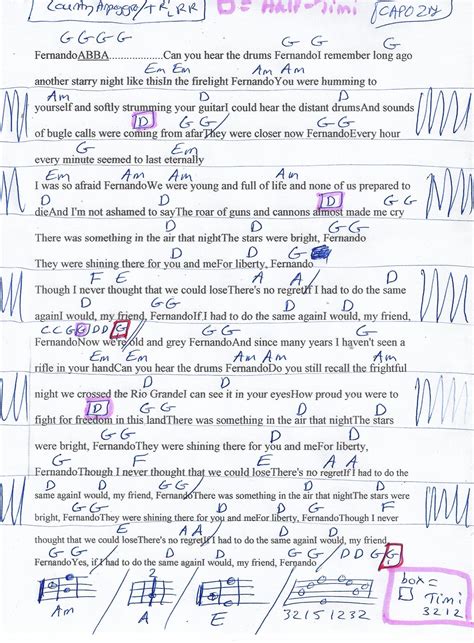 Country Arpeggio/TR,LRR □ = Half-Timi CAPO 2
G G G G G G
FernandoABBA..................Can you hear the drums FernandoI remember long ago
Em Em Am Am
another starry night like thisIn the firelight FernandoYou were humming to
Am D D
yourself and softly strumming your guitarI could hear the distant drumsAnd sounds
D G G G
of bugle calls were coming from afarThey were closer now FernandoEvery hour
G Em
every minute seemed to last eternally
Em Am Am Am
I was so afraid FernandoWe were young and full of life and none of us prepared to
D D D G
dieAnd I'm not ashamed to sayThe roar of guns and cannons almost made me cry
G D D
There was something in the air that nightThe stars were bright, Fernando
G G
They were shining there for you and meFor liberty, Fernando
F E A A D
Though I never thought that we could loseThere's no regretIf I had to do the same
D G G D D
againI would, my friend, FernandoIf I had to do the same againI would, my friend,
C C G G D D G G
FernandoNow we're old and grey FernandoAnd since many years I haven't seen a
Em Em Am Am
rifle in your handCan you hear the drums FernandoDo you still recall the frightful
D D D
night we crossed the Rio GrandeI can see it in your eyesHow proud you were to
D G G D
fight for freedom in this landThere was something in the air that nightThe stars
D G G
were bright, FernandoThey were shining there for you and meFor liberty,
G F E A A
FernandoThough I never thought that we could loseThere's no regretIf I had to do the
D D G G D
same againI would, my friend, FernandoThere was something in the air that nightThe stars were
D G G F
bright, FernandoThey were shining there for you and meFor liberty, FernandoThough I never
E A A D D
thought that we could loseThere's no regretIf I had to do the same againI would, my friend,
G G D D G G D D G G
FernandoYes, if I had to do the same againI would, my friend, Fernando
2 box =
□ Timi
Am A E 32151232 3212